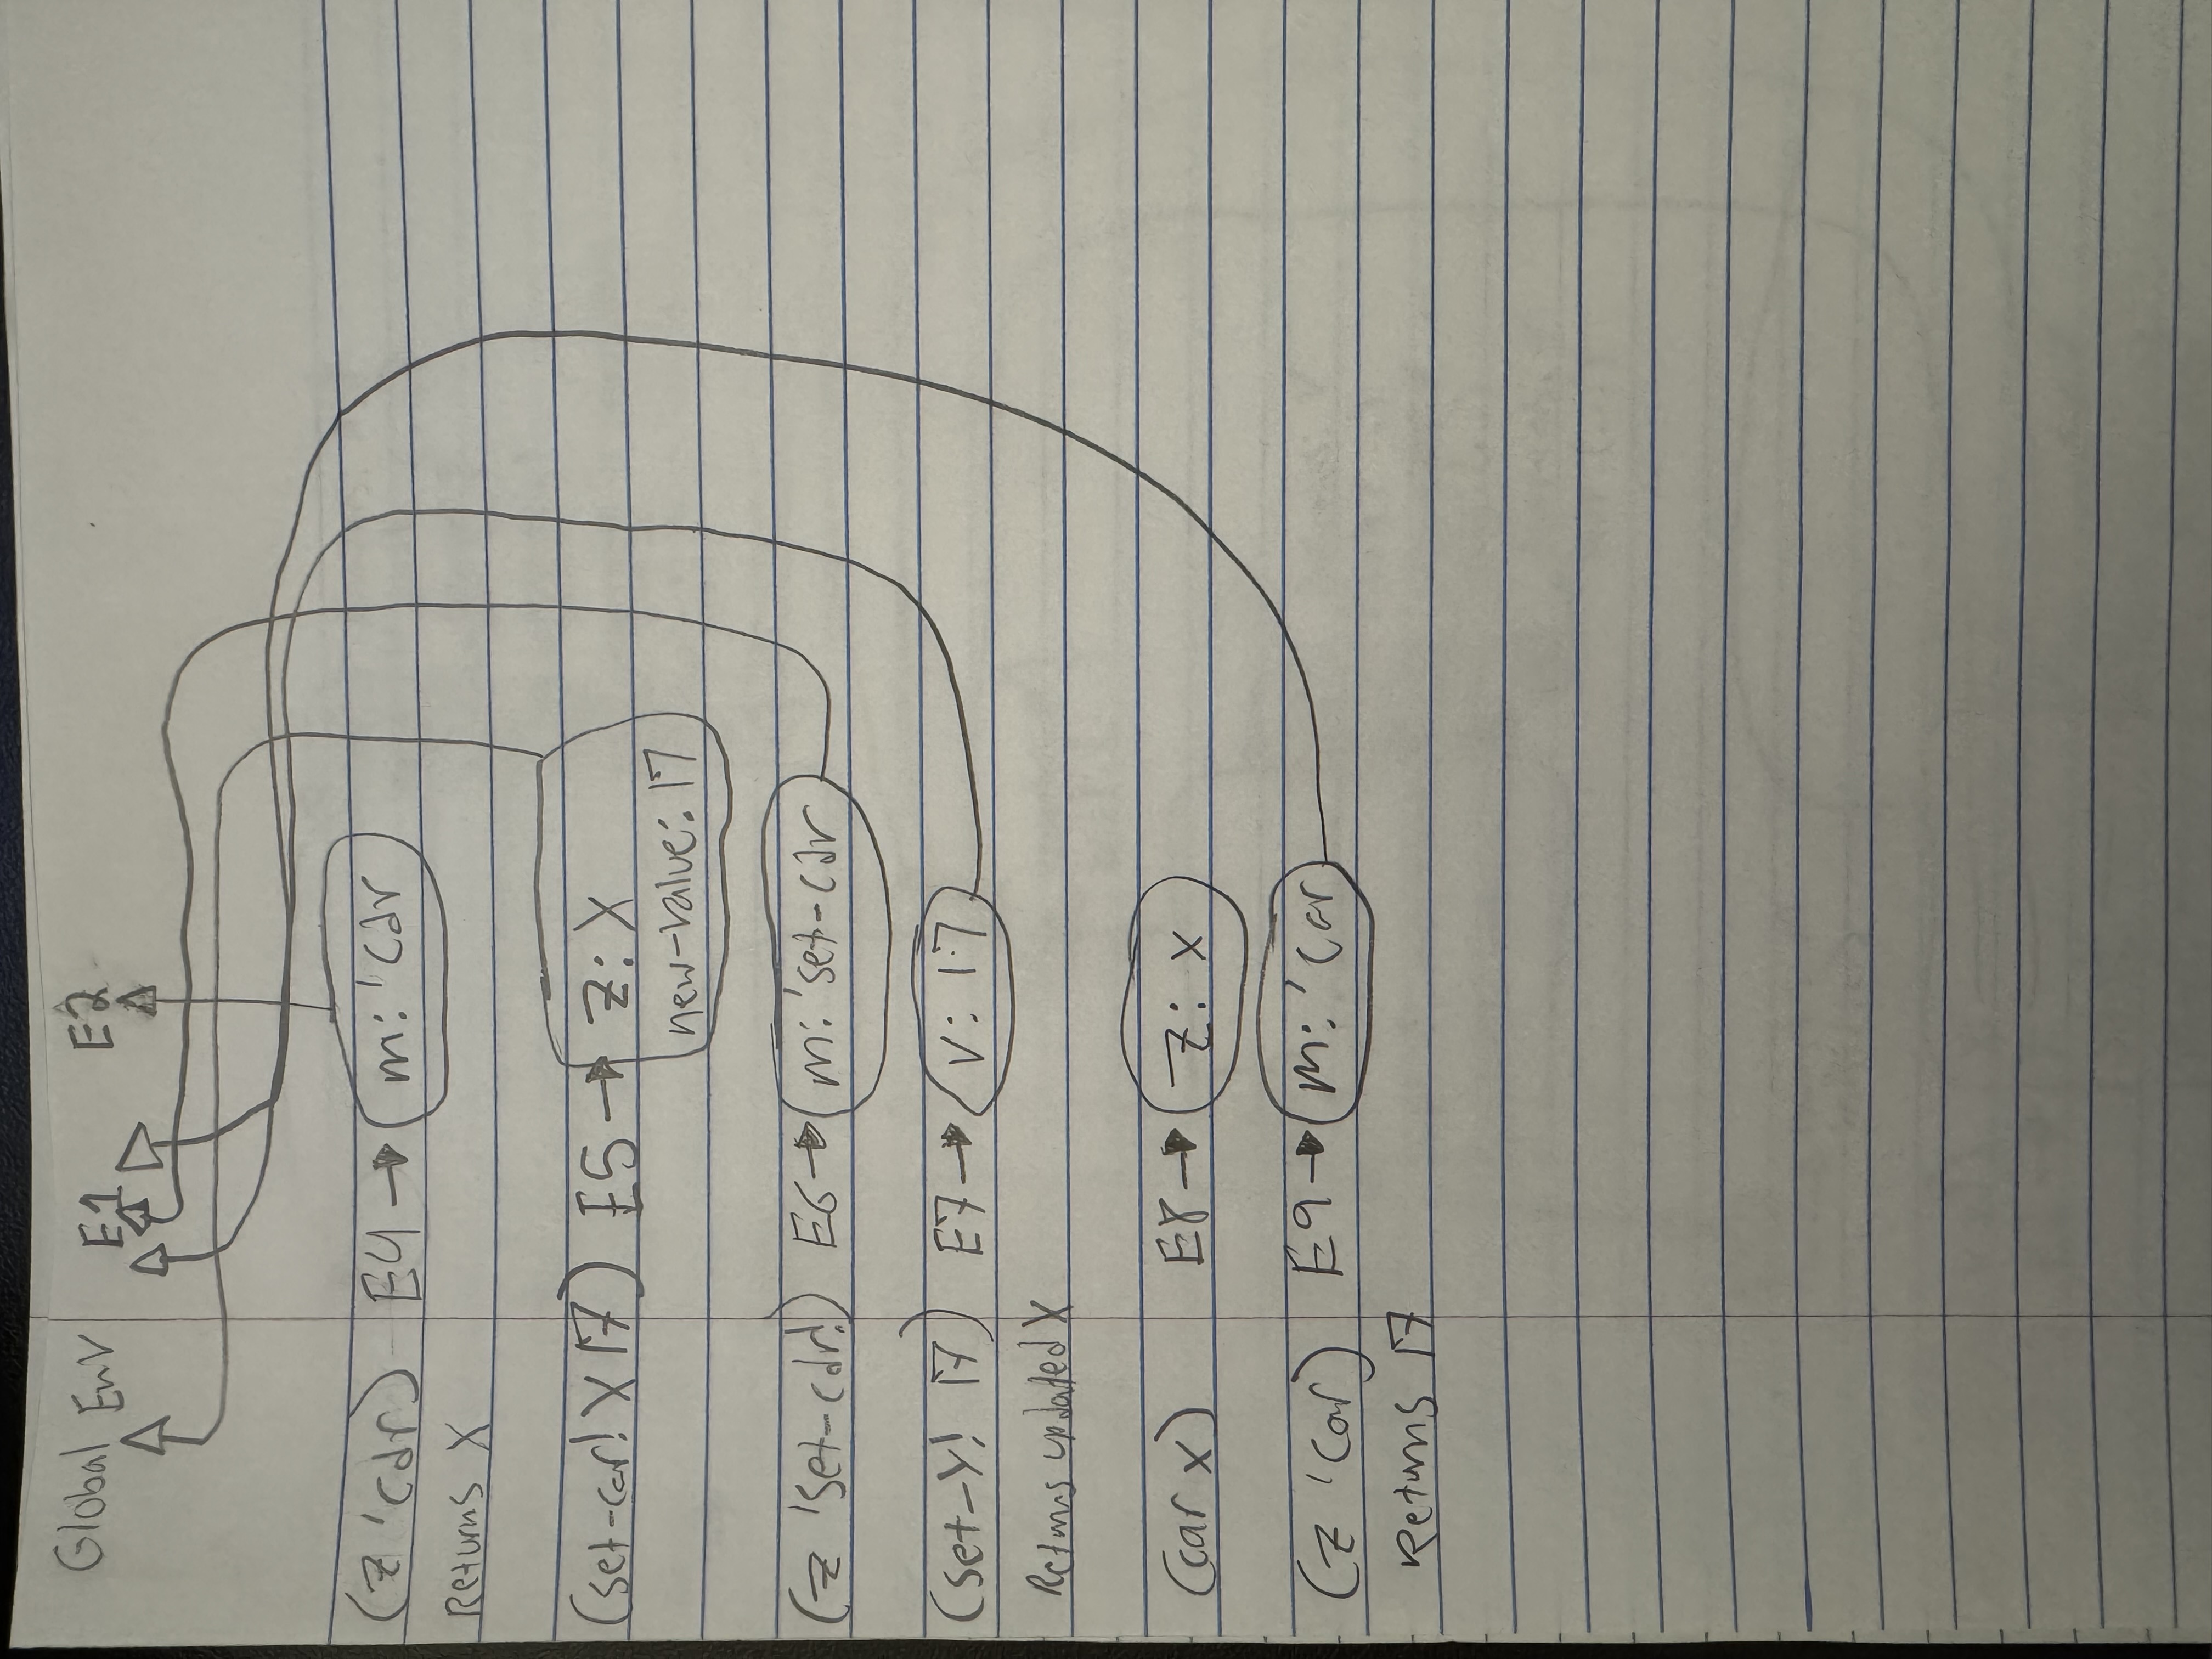 Global Env E1 E2
(z 'cdr) E4 m: 'cdr
Returns X
(set-car! X 17) E5 z: X
new-value: 17
(z 'set-cdr!) E6 m: 'set-cdr
(set-y! 17) E7 v: 17
Returns updated X
(car x) E8 z: x
(z 'car) E9 m: 'car
Returns 17